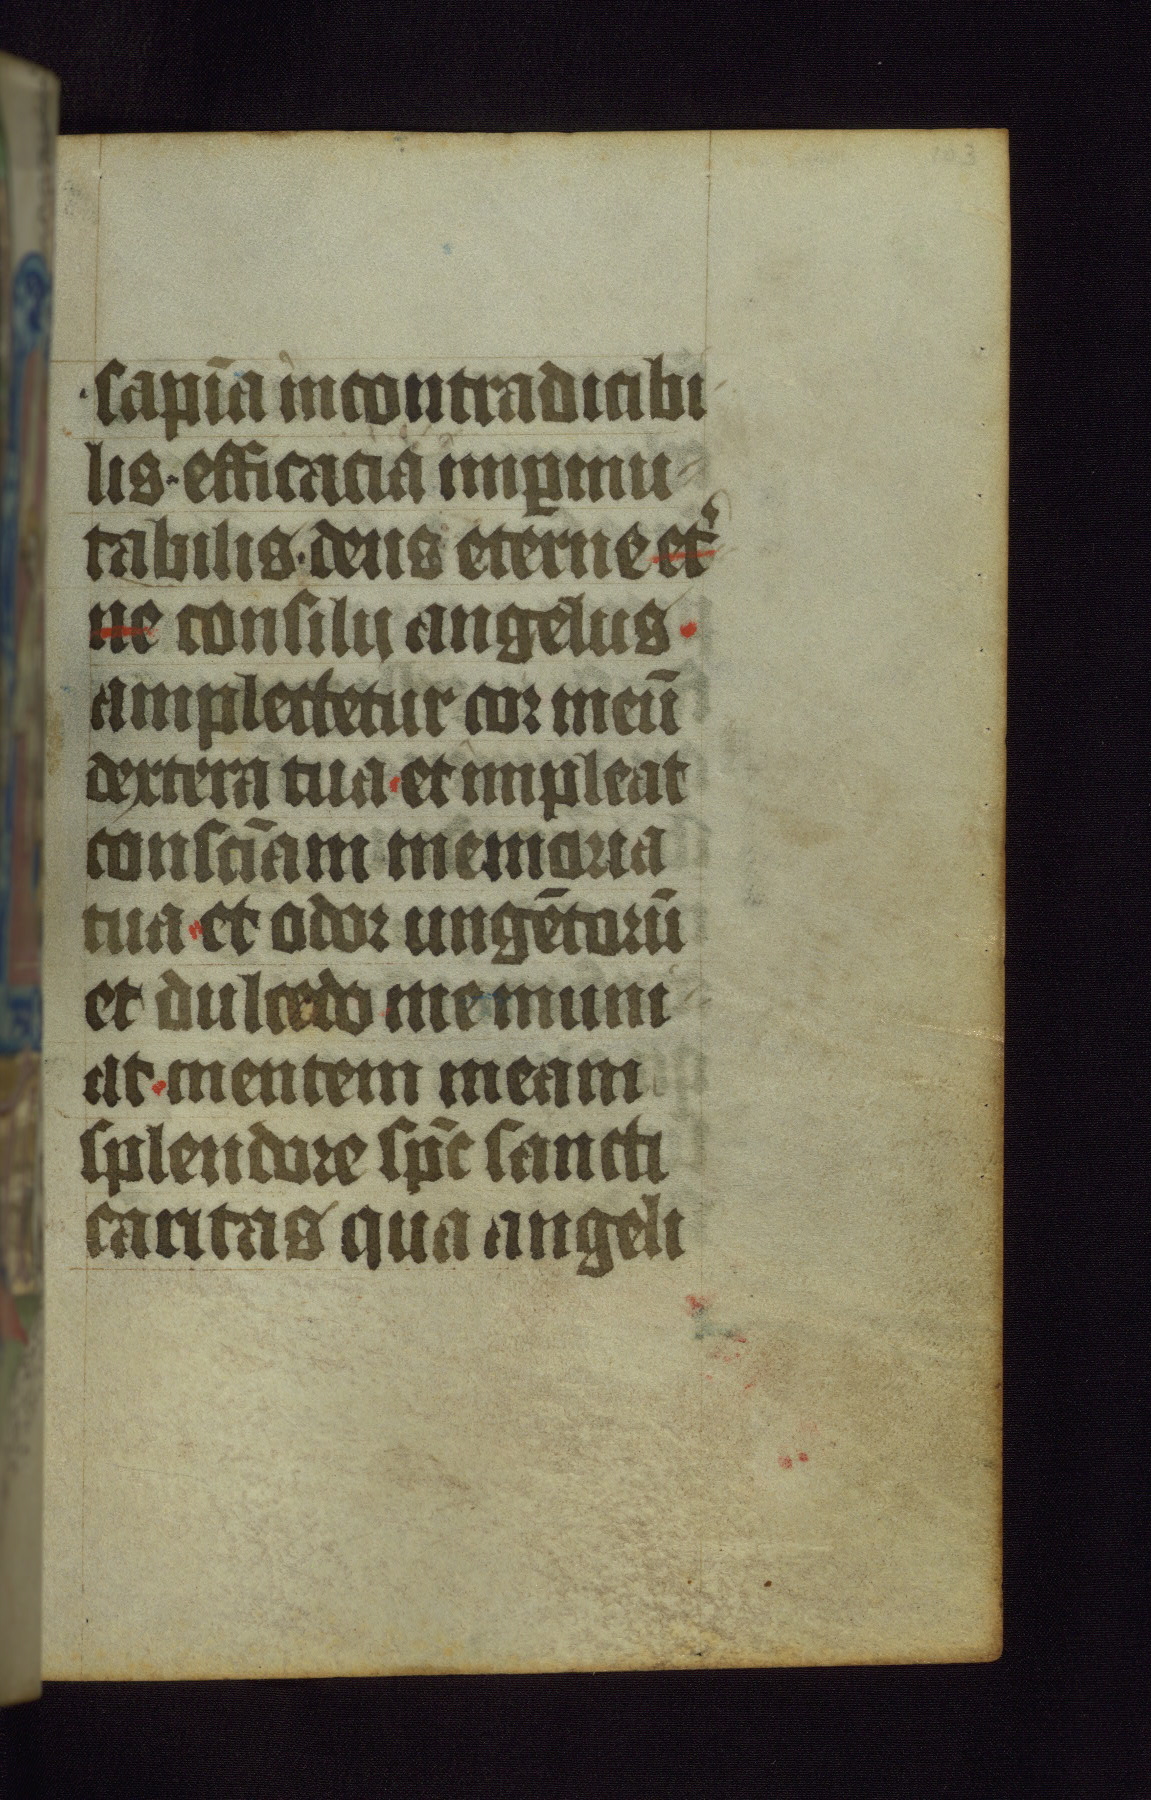 sapīa incontradicibi
lis·efficacia imꝑmu
tabilis·deus eterne et
ne consilij angelus
amplectetur cor meū
dextera tua·et impleat
consciāam memoria
tua·et odor ungētorū
et dulcedo me muni
at·mentem meam
splendore spc̄ sancti
caritas qua angeli